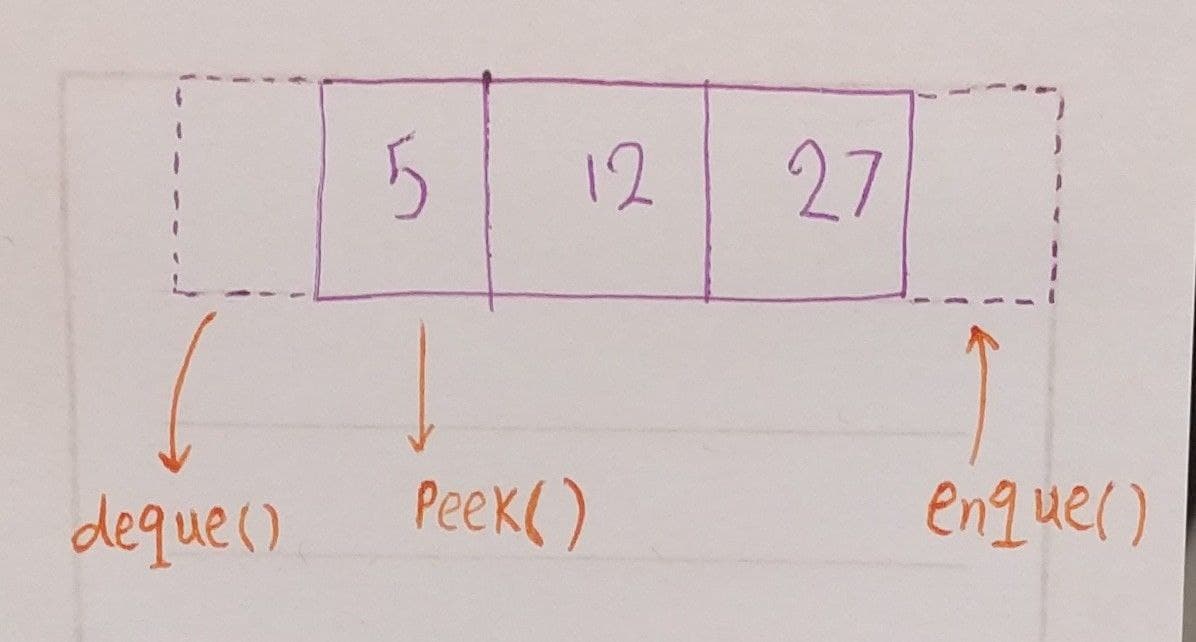 5 12 27
deque() Peek() enque()